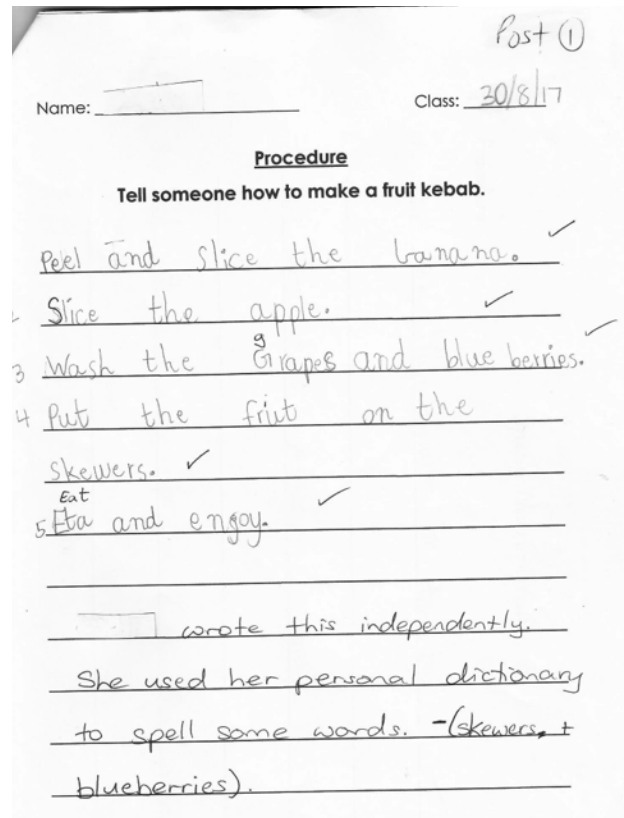 Post ①
Name:
Class: 30/8/17
Procedure
Tell someone how to make a fruit kebab.
Peel and slice the banana. ✓
Slice the apple. ✓
g
3 Wash the Grapes and blue berries. ✓
4 Put the friut on the
skewers. ✓
Eat
5. Eta and engoy. ✓
wrote this independently.
She used her personal dictionary
to spell some words. - (skewers, +
blueberries).